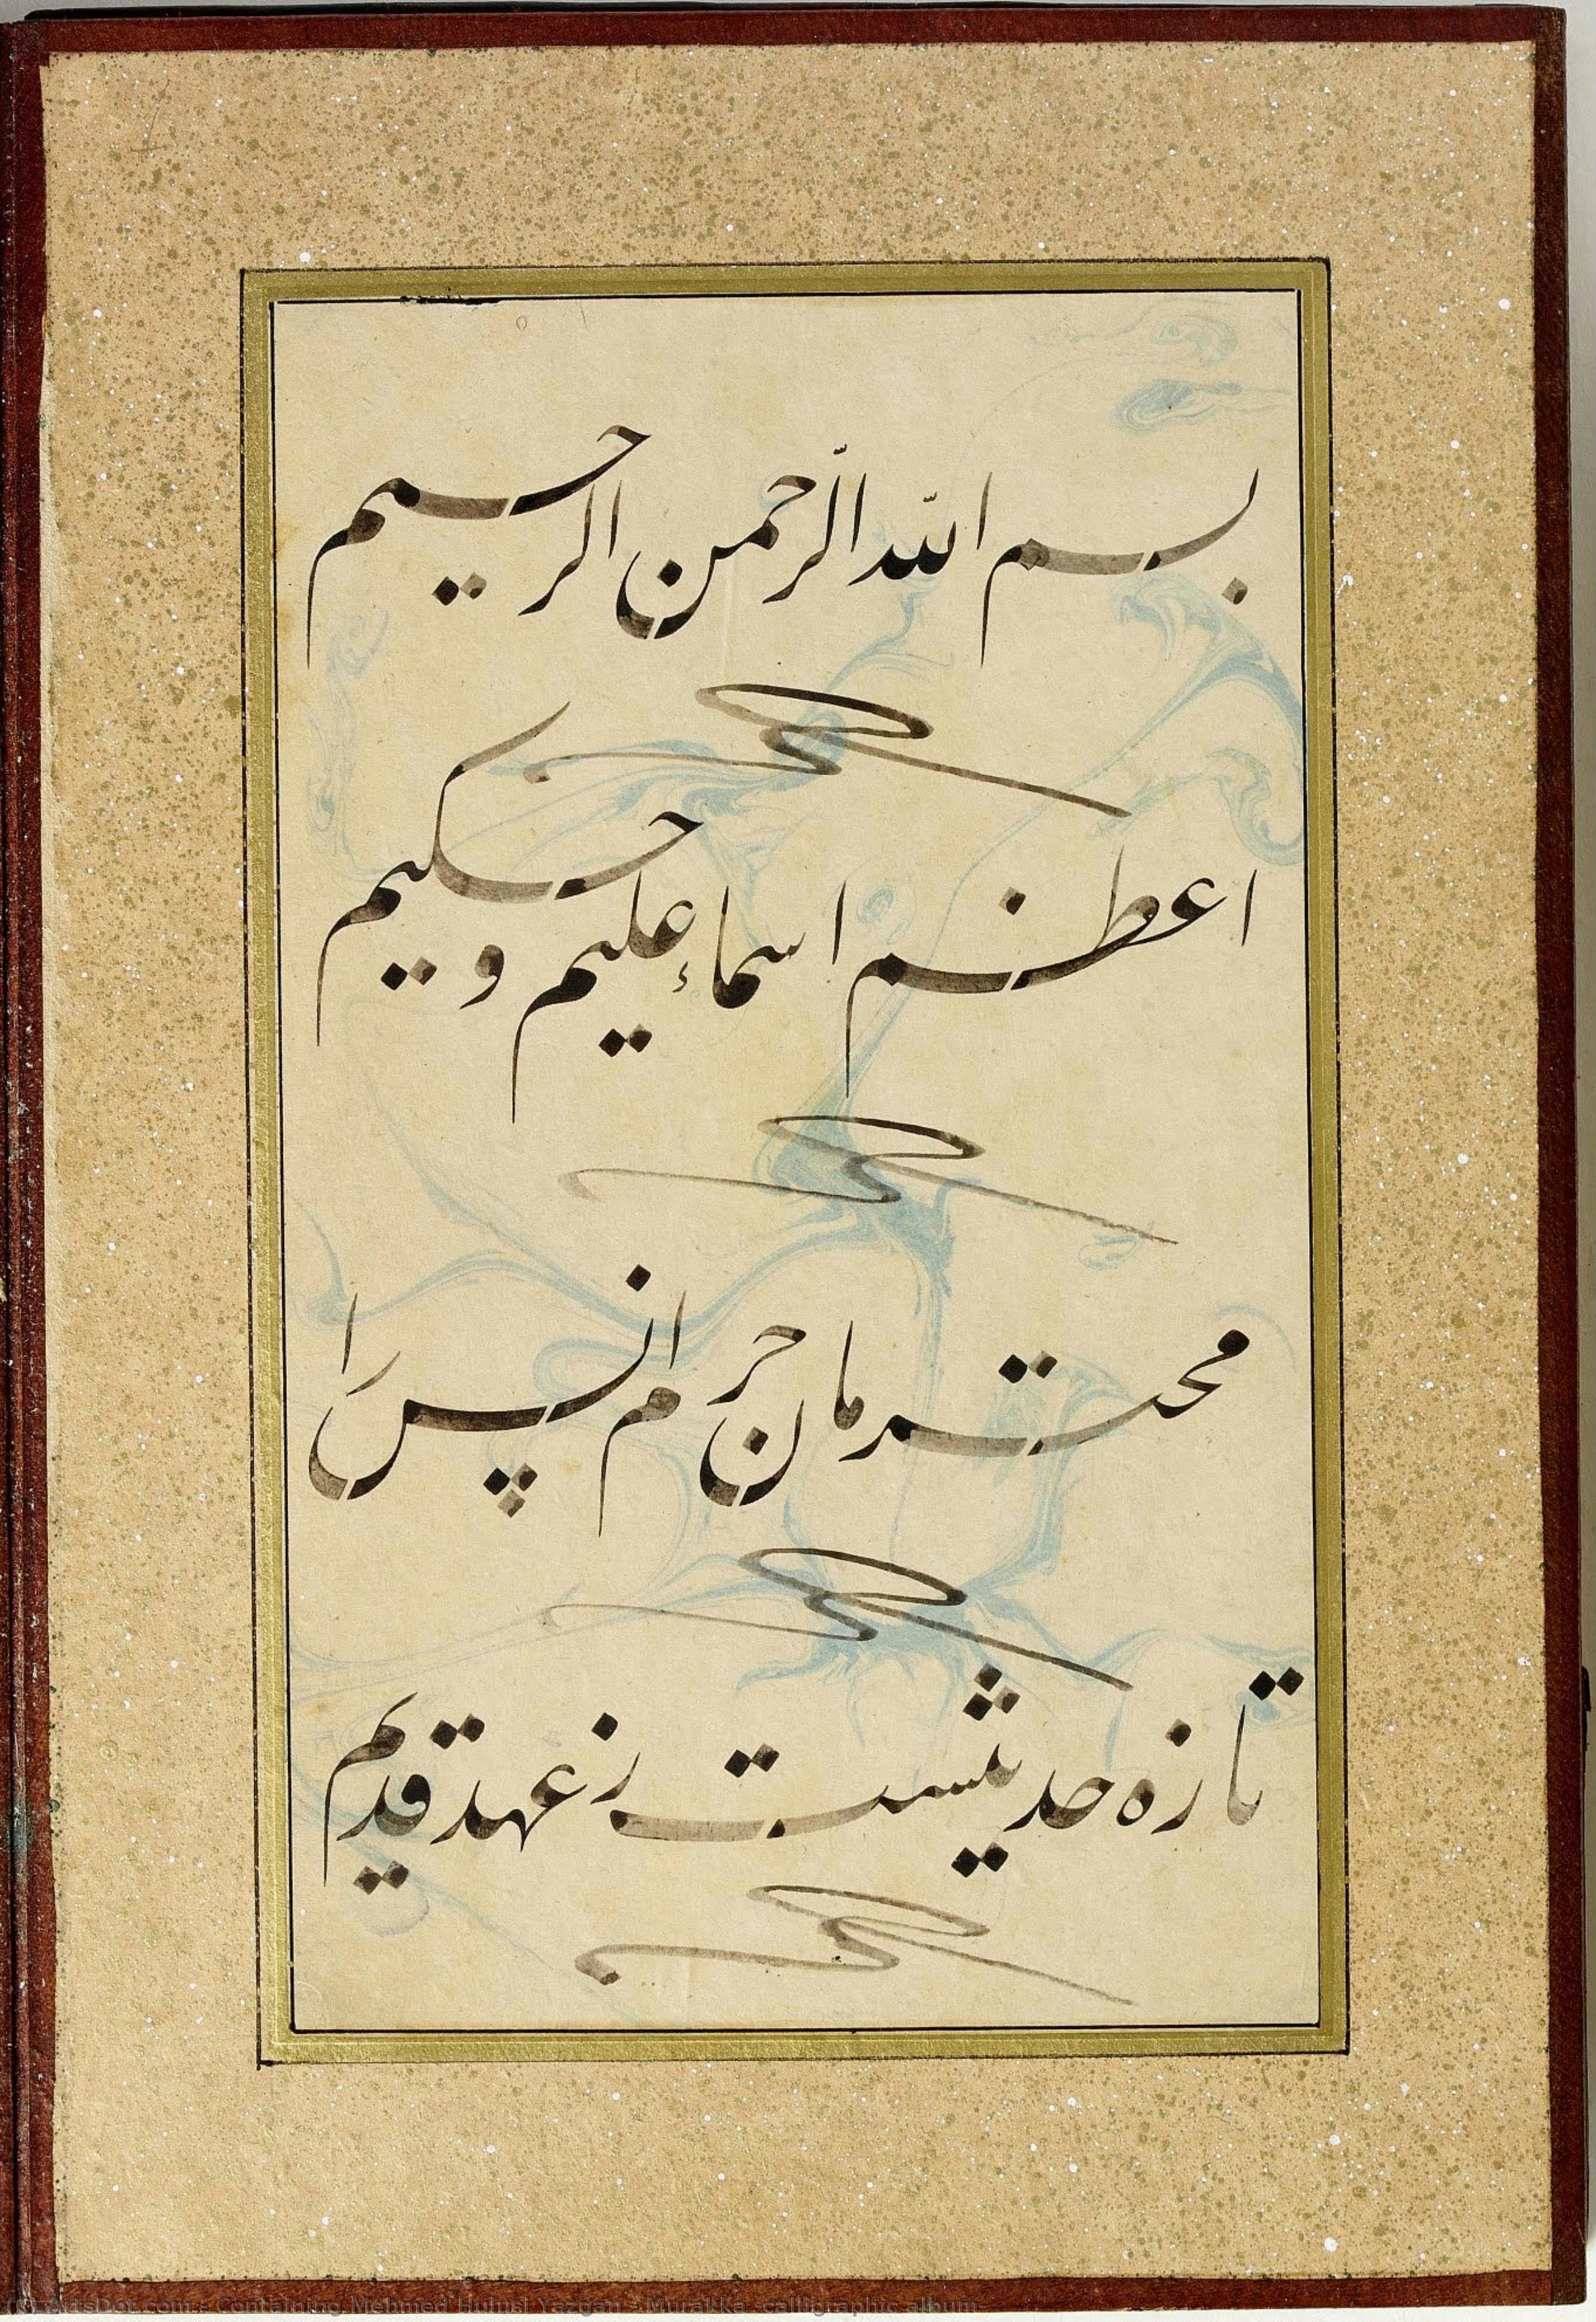 بسم الله الرحمن الرحیم
اعظم اسماء علیم و حکیم
محترمان حرم انس را
تازه حدیثیست ز عهد قدیم
ArtsDot.com - Containing Mehmed Hulusi Yazgan - Murakka -calligraphic album-